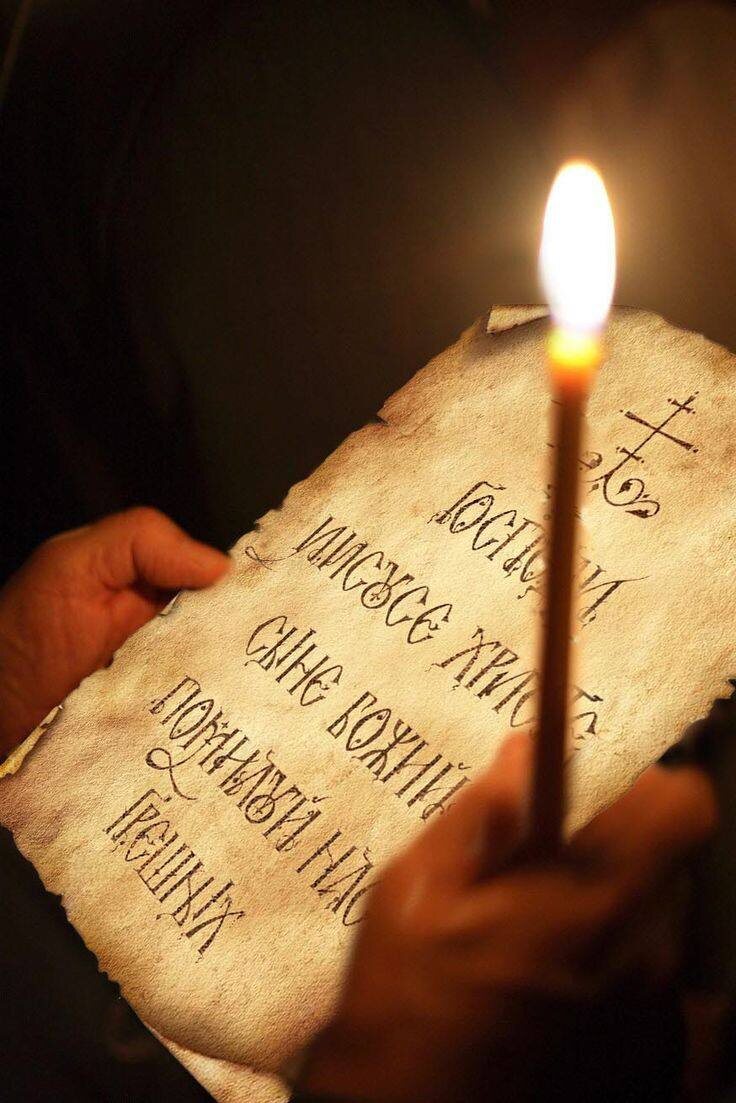 Господи
Иисусе Христе
Сыне Божий
Помилуй нас
грешных